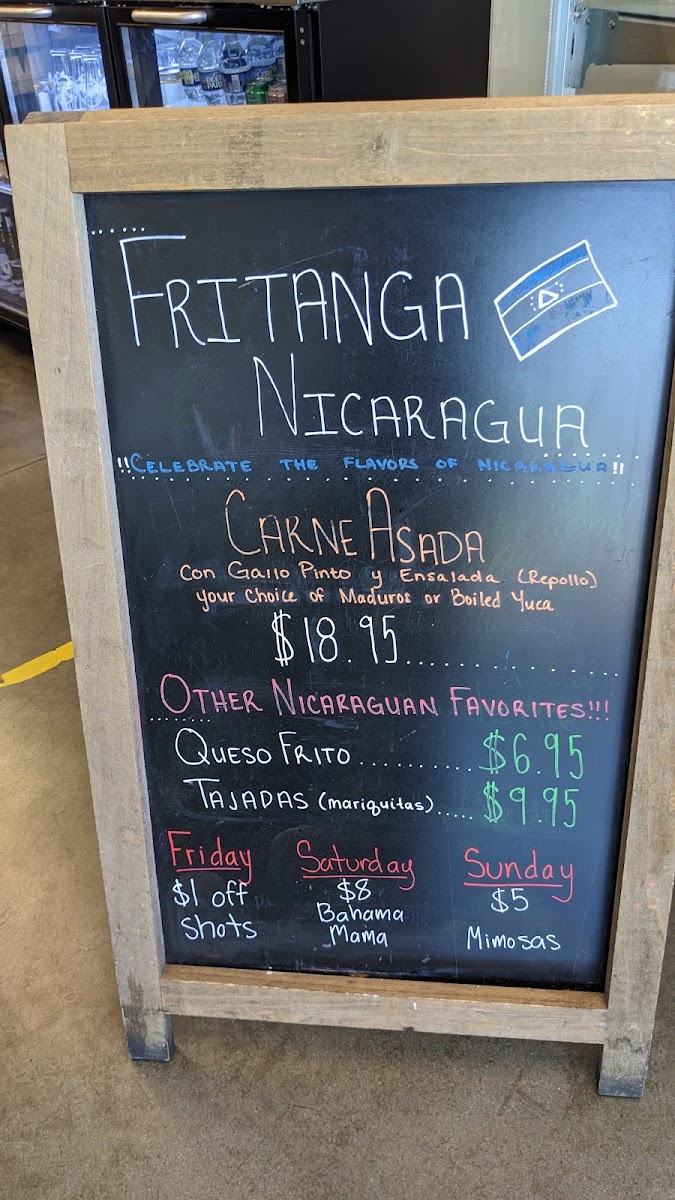 FRITANGA
NICARAGUA
!!CELEBRATE THE FLAVORS OF NICARAGUA!!
CARNE ASADA
Con Gallo Pinto y Ensalada (Repollo)
your choice of Maduros or Boiled Yuca
$18.95..............
OTHER NICARAGUAN FAVORITES!!!
QUESO FRITO........... $6.95
TAJADAS (mariquitas)..... $9.95
Friday Saturday Sunday
$1 off $8 $5
Shots Bahama Mimosas
Mama